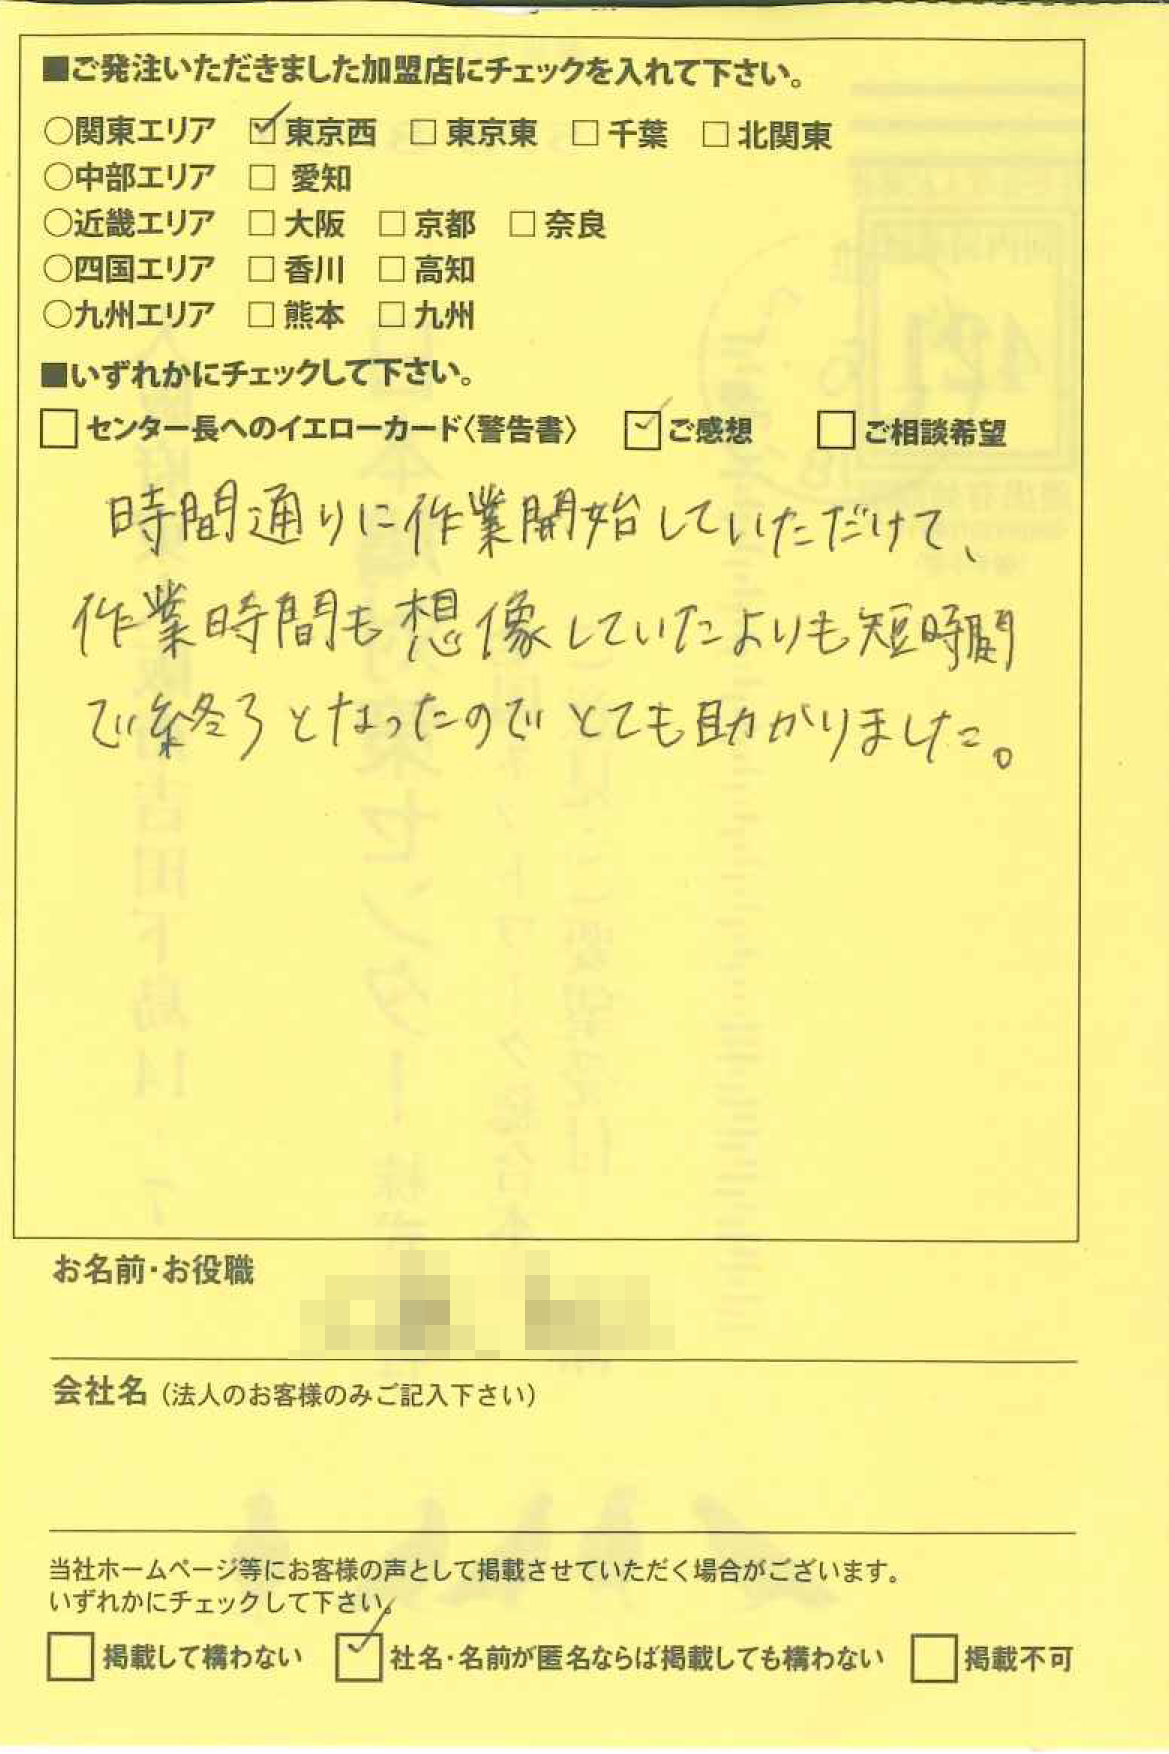 ■ご発注いただきました加盟店にチェックを入れて下さい。
○関東エリア ☑東京西 □東京東 □千葉 □北関東
○中部エリア □愛知
○近畿エリア □大阪 □京都 □奈良
○四国エリア □香川 □高知
○九州エリア □熊本 □九州
■いずれかにチェックして下さい。
□センター長へのイエローカード〈警告書〉 ☑ご感想 □ご相談希望
時間通りに作業開始していただけて、
作業時間も想像していたよりも短時間
で終了となったのでとても助かりました。
お名前・お役職
会社名（法人のお客様のみご記入下さい）
当社ホームページ等にお客様の声として掲載させていただく場合がございます。
いずれかにチェックして下さい。
□掲載して構わない ☑社名・名前が匿名ならば掲載しても構わない □掲載不可